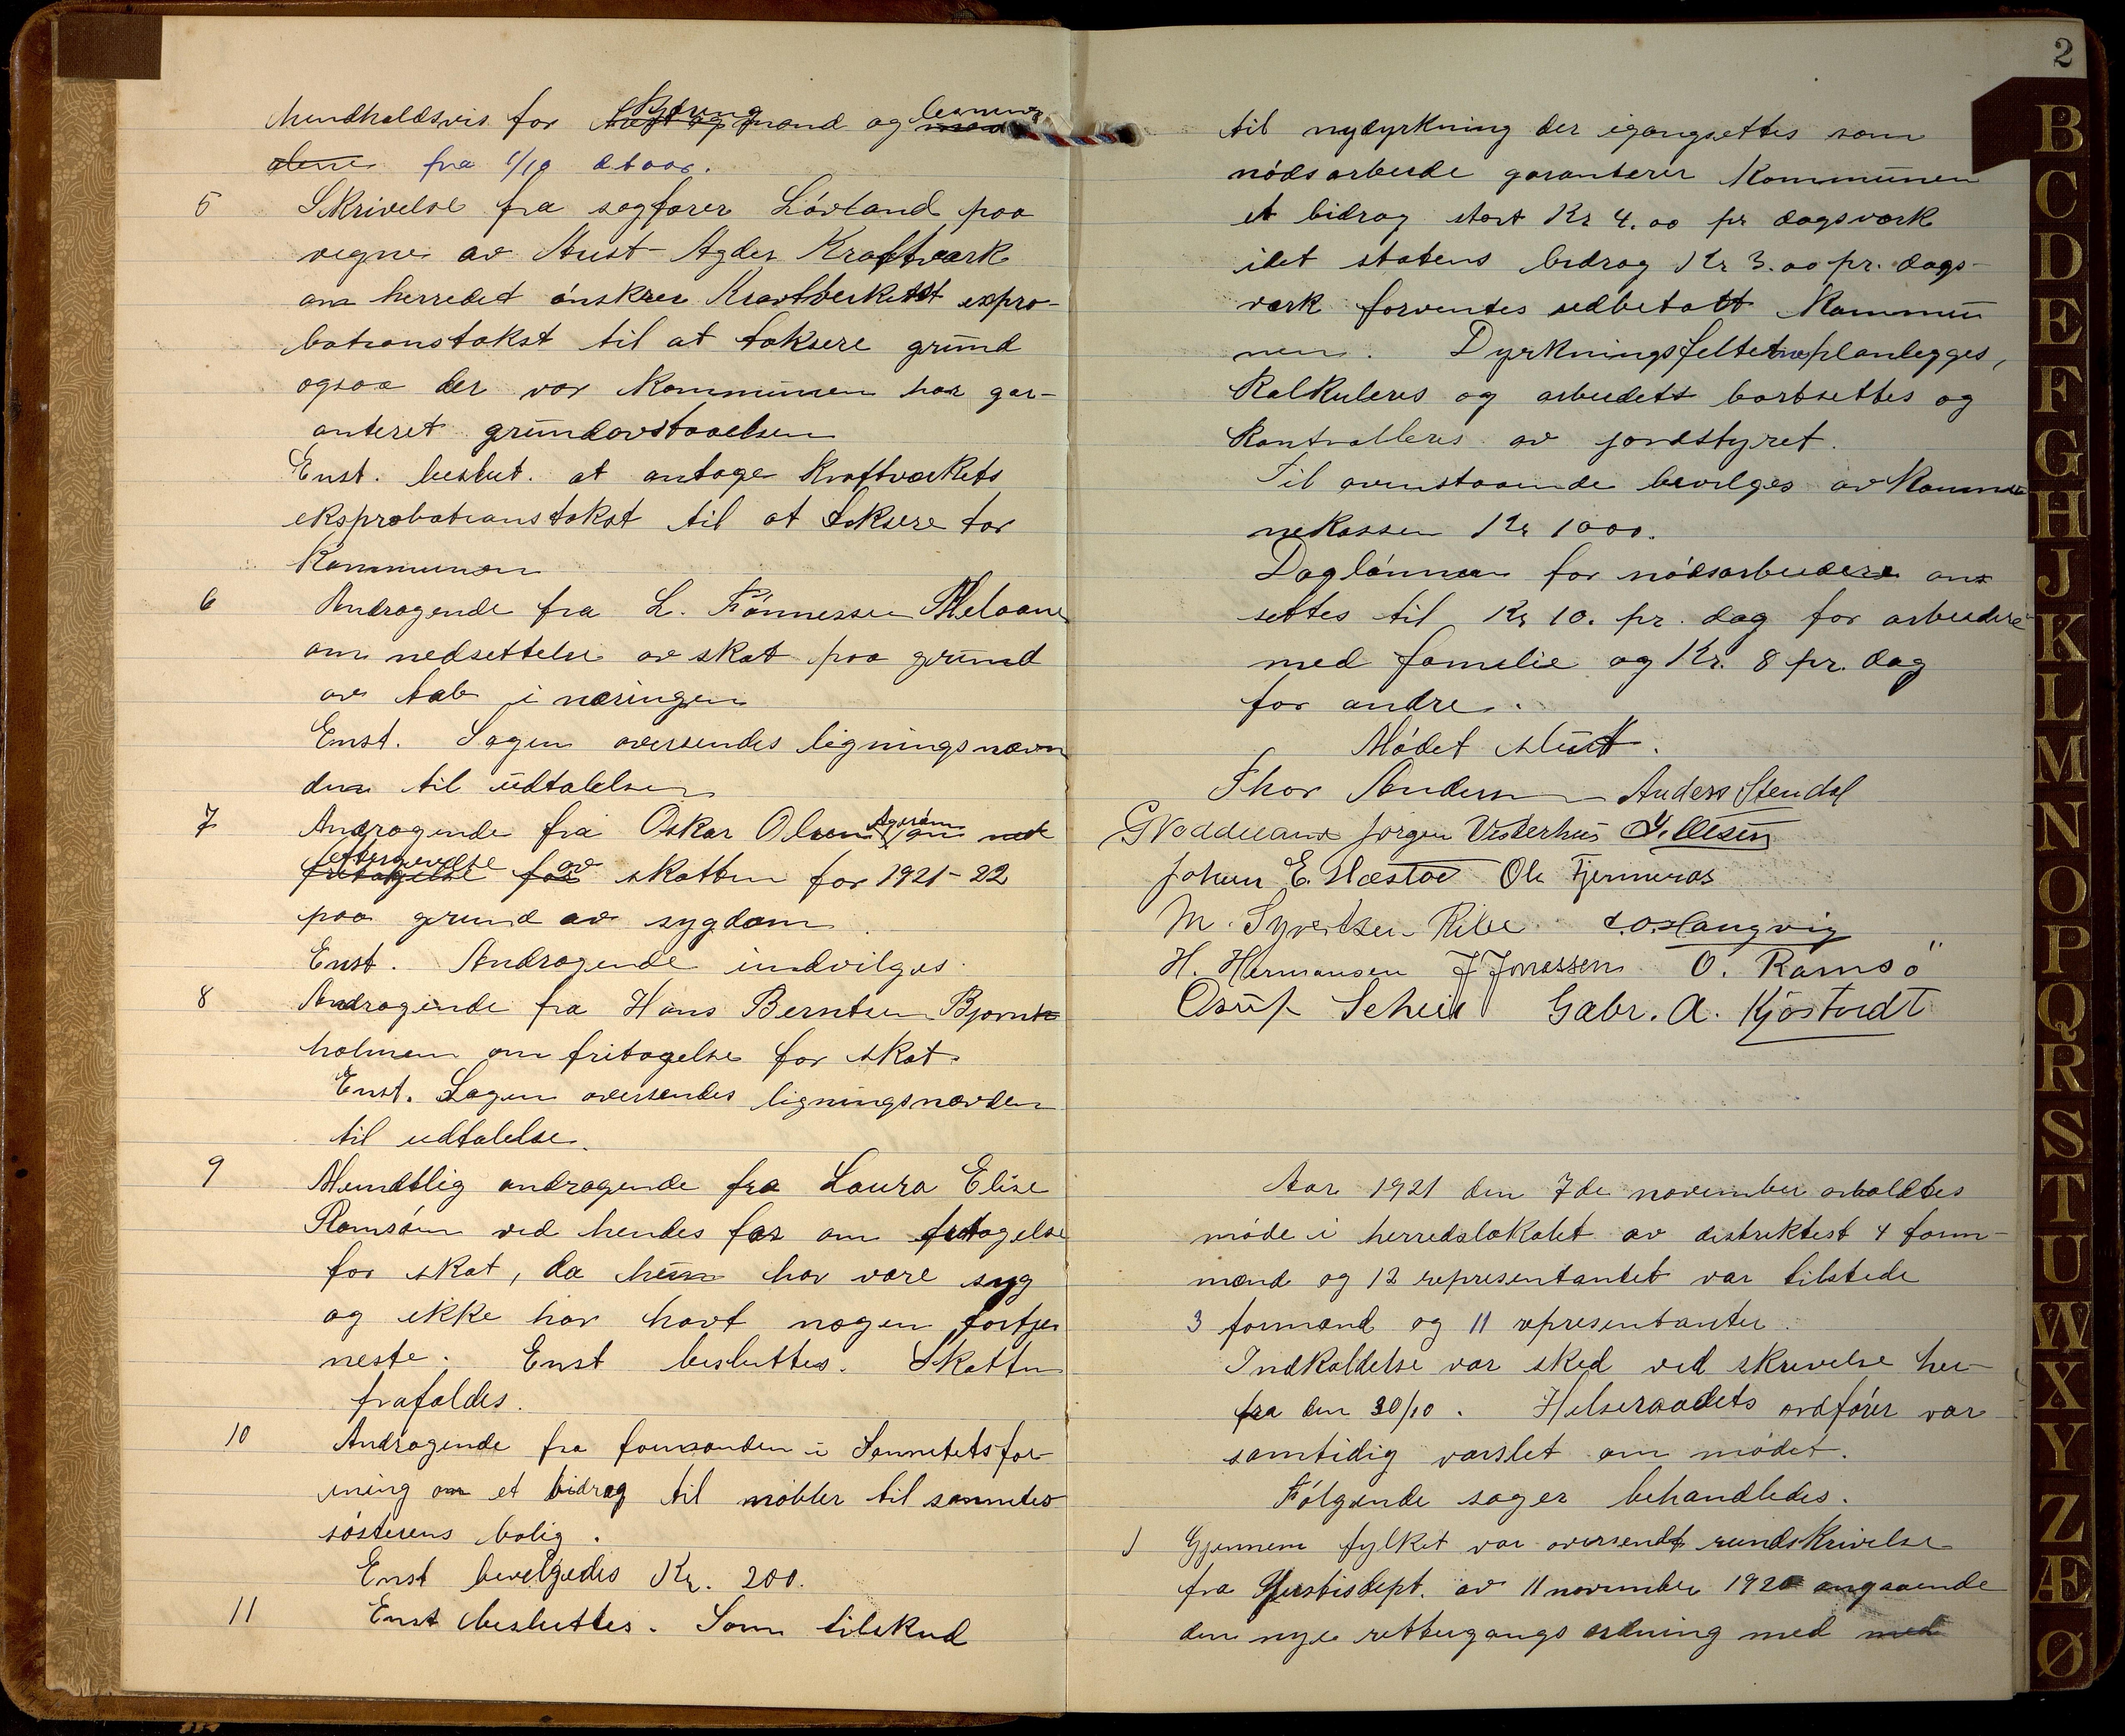 hendholdsvis for Skydning mand og
fra 1/10 dtaar.
5 Skrivelse fra sagfører Lövland paa
vegne av Aust-Agder Kraftverk
om herredet önsker Kravtverkets expro-
bationstakst til at taksere grund
ogsaa der vor Kommunen har gar-
anteret grundavstaaelsen
Enst. beslut. at antage Kraftverkets
eksprobationstakst til at taksere for
Kommunen
6 Andragende fra L. Tönnessen
om nedsettelse av skat paa grund
av tab i næringen
Enst. Sagen oversendes ligningsnævn
den til udtalelse
7 Andragende fra Oskar Olsen om
eftergivelse av skatten for 1921-22
paa grund av sygdom.
Enst. Andragende indvilges.
8 Andragende fra Hans Berntsen Bjornt
holmen om fritagelse for skat.
Enst. Sagen oversendes ligningsnævden
til udtalelse.
9 Mundtlig andragende fra Laura Elise
Ramsöen ved hendes far om fritagelse
for skat, da hun har være syg
og ikke har havt nogen fortje
neste. Enst besluttes. Skatten
frafaldes.
10 Andragende fra formanden i Sannitetsfor-
ening om et bidrag til möbler til sannites
sösterens bolig.
Enst bevilgedes Kr. 200.
11 Enst besluttes. Som tilskud
2
til nydyrkning der igangsettes som
nödsarbeide garanterer Kommunen
et bidrag stort Kr 4.00 pr dagsværk
idet statens bidrag Kr 3.00 pr. dags-
værk forventes udbetalt Kommu
nen. Dyrkningsfeltene planlegges,
kalkuleres og arbeidett bortsettes og
kontrolleres av jordstyret.
Til ovenstaaende bevilges av Kommu
nekassen Kr 1000.
Daglönnen for nödsarbeidere an
settes til Kr 10. pr. dag for arbeidere
med familie og Kr. 8 pr. dag
for andre.
Mödet slutt.
Thor Andersen Anders Stendal
Jørgen Vesterhus J. Olesen
Johan E. Hæstad Ole Fjermeros
M. Syvertsen Ribe
H. Hermansen J Jonassen O. Ramsö
Gabr. A. Kjöstvedt
Aar 1921 den 7de november avholdtes
möde i herredslokalet av distriktest 4 form-
mænd og 12 representantet var tilstede
3 formænd og 11 representanter.
Indkaldelse var sked ved skrivelse her-
fra den 30/10. Helseraadets ordförer var
samtidig varslet om mödet.
Fölgende sager behandledes.
1 Gjennem fylket var oversendt rundskrivelse
fra Justisdept. av 11 november 1920 angaaende
den nye rettergangs ordning med med
B
C
D
E
F
G
H
J
K
L
M
N
O
P
Q
R
S
T
U
W
X
Y
Z
Æ
Ø